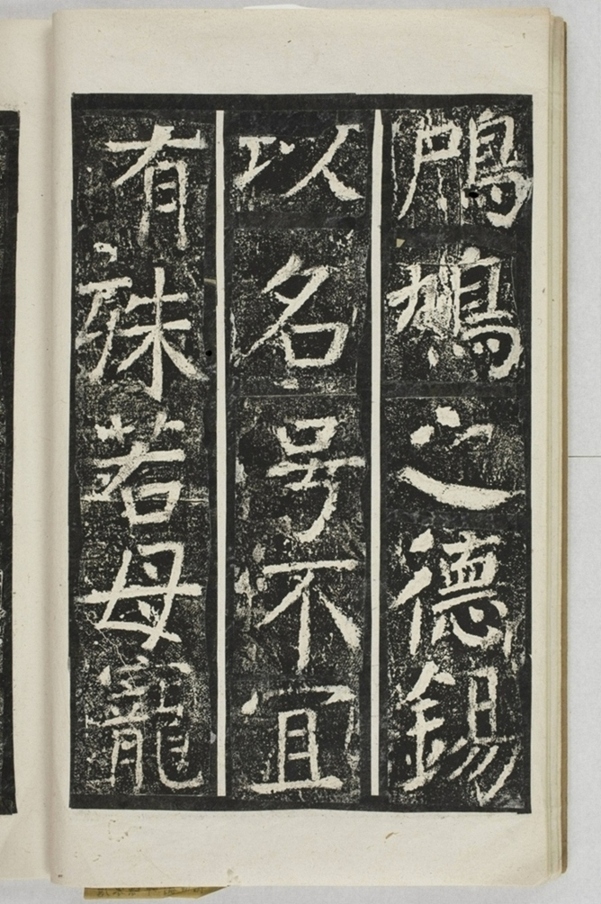 鳲鳩之德錫
以名号不宜
有殊若母寵